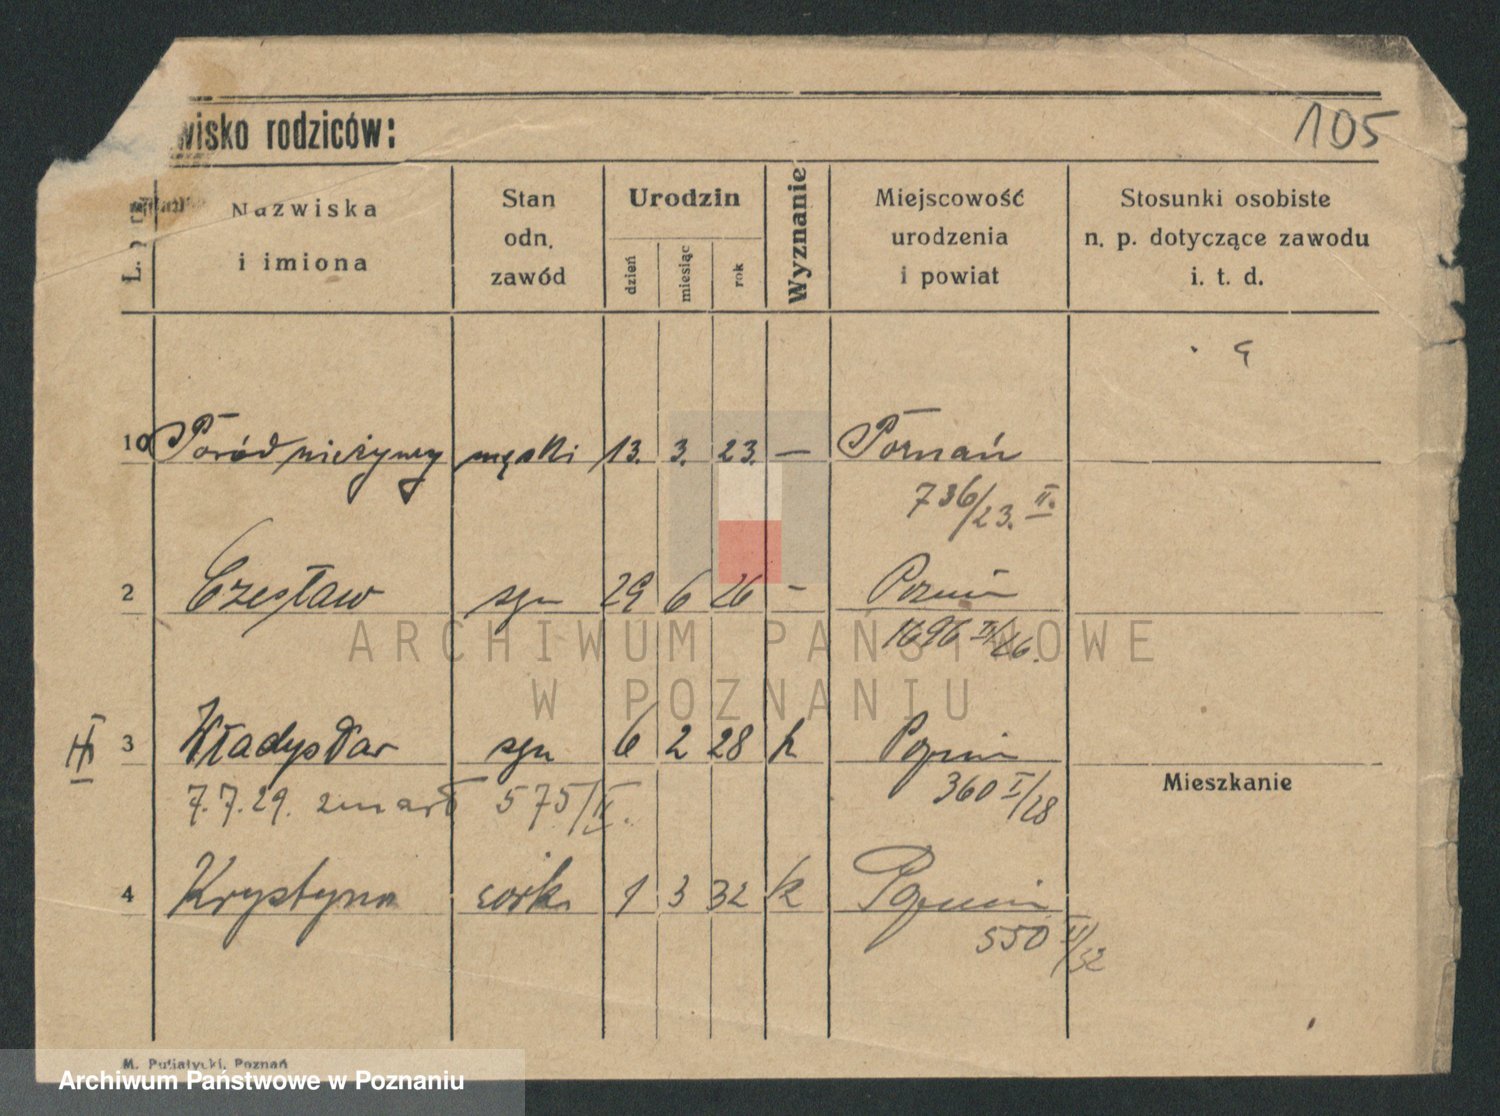 105
wisko rodziców:
Nazwiska
i imiona
Stan
odn.
zawód
Urodzin
dzień
miesiąc
rok
Wyznanie
Miejscowość
urodzenia
i powiat
Stosunki osobiste
n. p. dotyczące zawodu
i. t. d.
10 Poród nieżywy męski 13. 3. 23. — Poznań
736/23. II.
2 Czesław syn 29 6 26 - Poznań
1696 II/26.
ARCHIWUM PAŃSTWOWE
W POZNANIU
3 Władysław syn 6 2 28 k Poznań
360 I/28
Mieszkanie
7.7.29. zmarł 575/II.
4 Krystyna córka 1 3 32 k Poznań
550 II/32
M. Putiatycki, Poznań
Archiwum Państwowe w Poznaniu